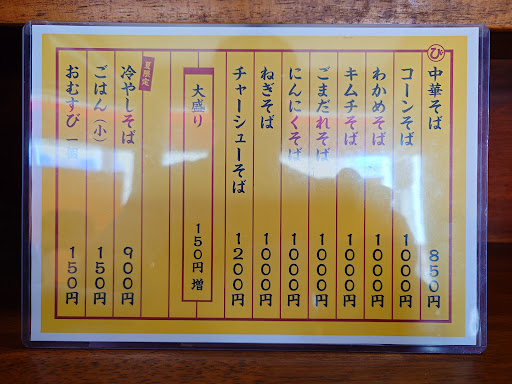 ひ
中華そば 850円
コーンそば 1000円
わかめそば 1000円
キムチそば 1000円
ごまだれそば 1000円
にんにくそば 1000円
ねぎそば 1000円
チャーシューそば 1200円
大盛り 150円増
夏限定
冷やしそば 900円
ごはん(小) 150円
おむすび 一個 150円